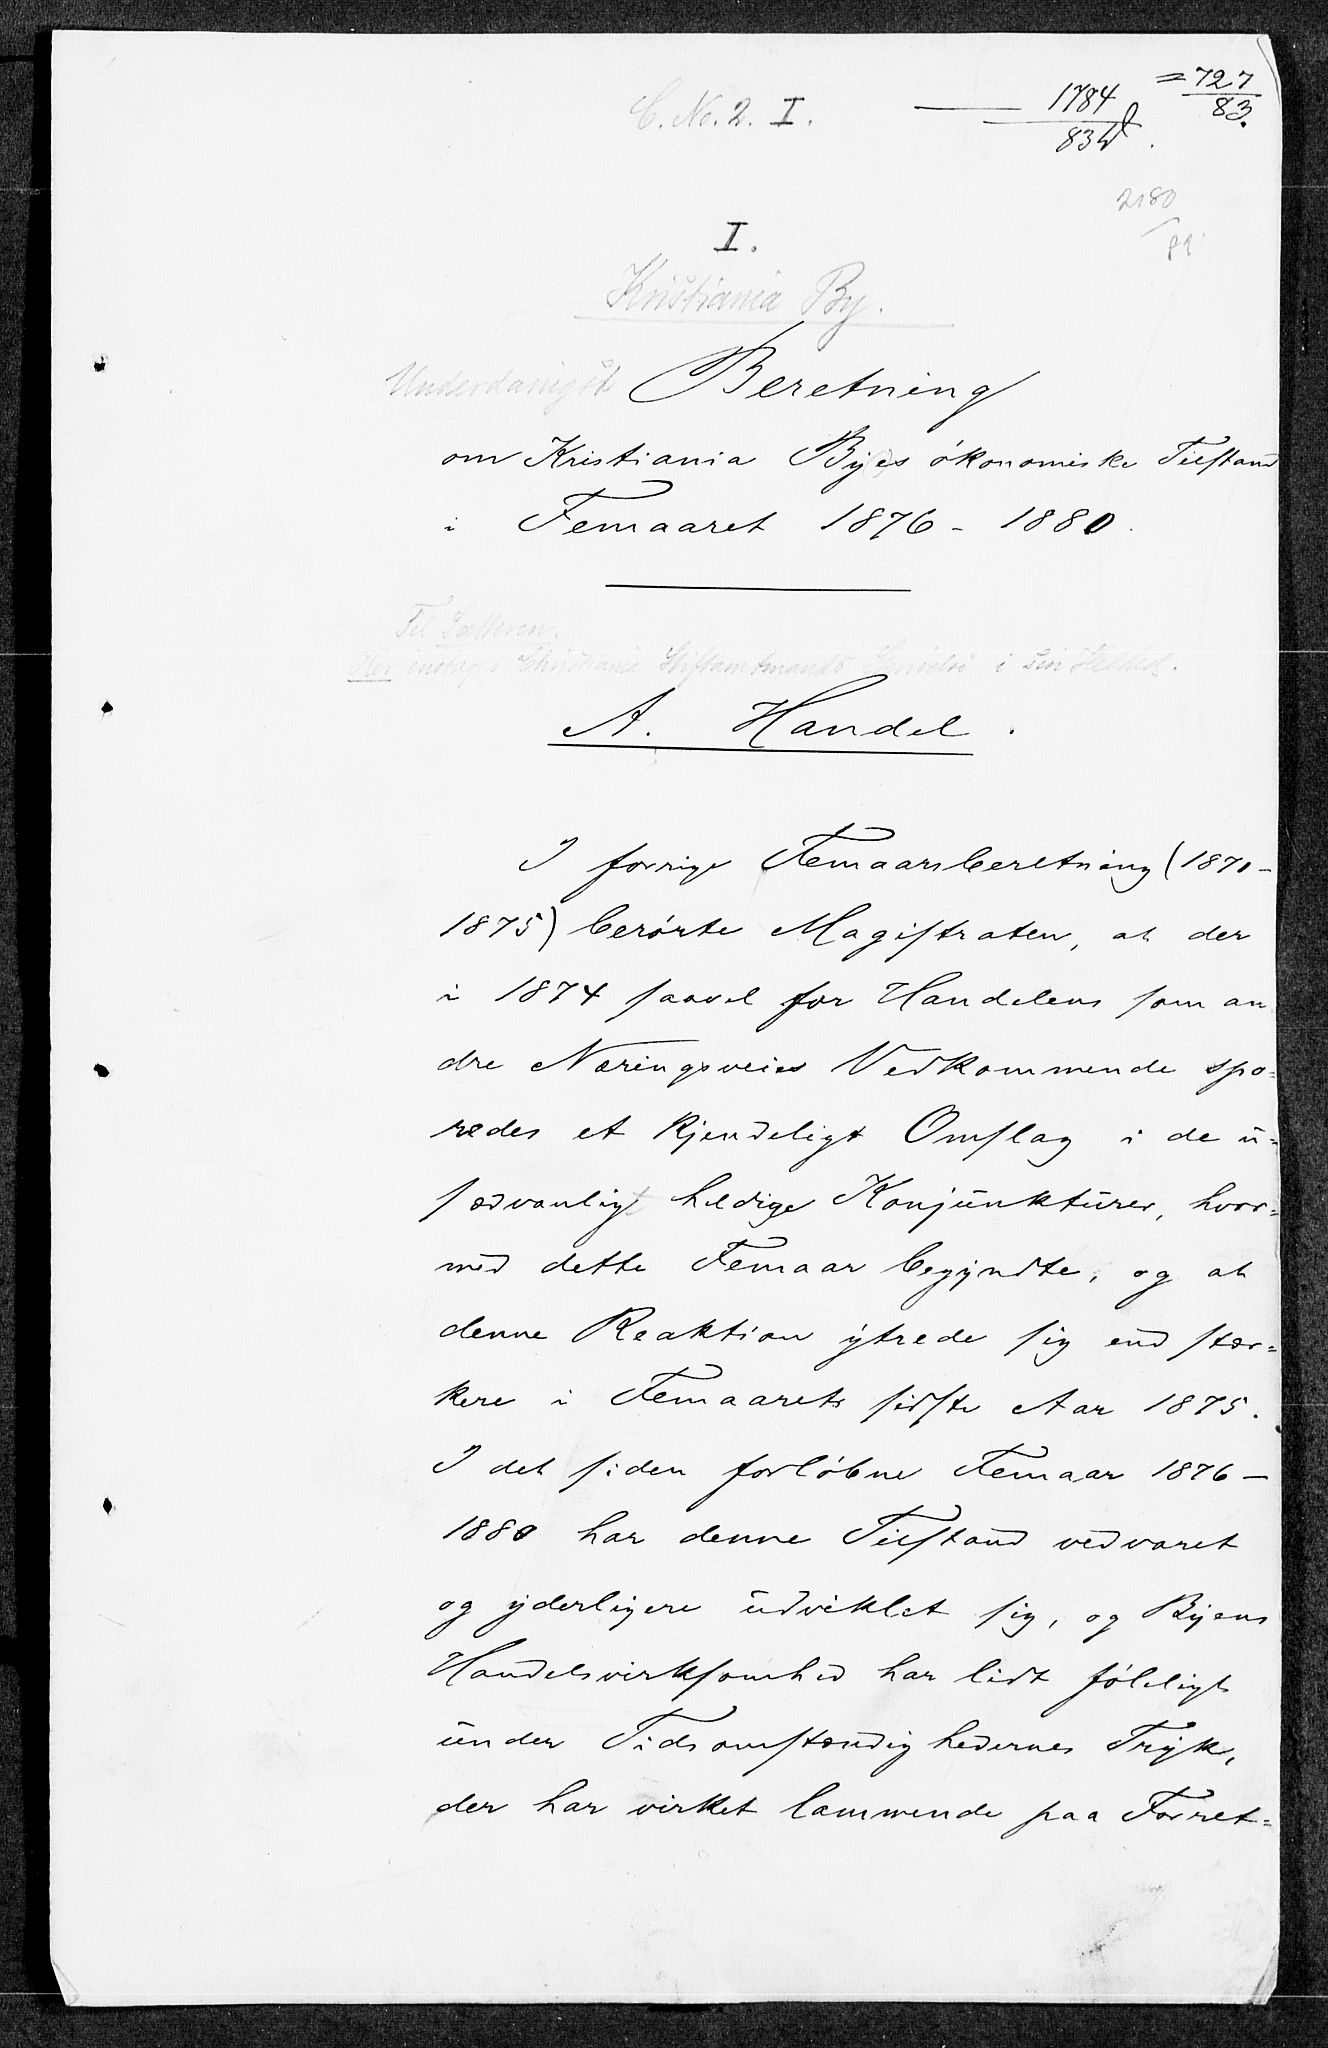 C. No. 2. I.
1784
83
= 727
83.
2180
I.
Kristiania By.
Underdanigst Beretning
om Kristiania Byes økonomiske Tilstand
i Femaaret 1876 - 1880.
Til Sætteren.
Her indtages Christiania Stiftamtmands Skrivelse i sin Helhed.
A. Handel.
I forrige Femaarsberetning (1871-
1875) berørte Magistraten, at der
i 1874 saavel for Handelens som an
dre Næringsveies Vedkommende spo-
redes et kjendeligt Omslag i de u-
sædvanlig heldige Konjunkturer, hvor-
med dette Femaar begyndte, og at
denne Reaktion ytrede sig end stær-
kere i Femaarets sidste Aar 1875.
I det siden forløbne Femaar 1876 -
1880 har denne Tilstand vedvaret
og yderligere udviklet sig, og Byens
Handelsvirksomhed har lidt føleligt
under Tidsomstændighedernes Tryk,
der har virket lammende paa Forret-